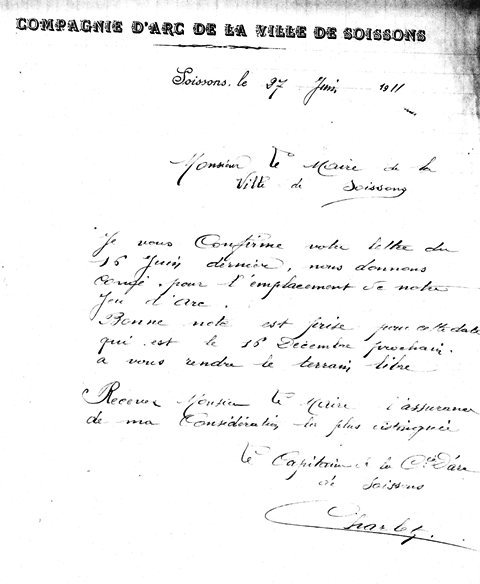 COMPAGNIE D'ARC DE LA VILLE DE SOISSONS
Soissons, le 27 Juin 1911
Monsieur le Maire de la
Ville de Soissons
Je vous Confirme votre lettre du
15 Juin dernier, nous donnons
congé, pour l'emplacement de notre
Jeu d'Arc.
Bonne note est prise pour cette date
qui est le 15 Décembre prochain.
a vous rendre le terrain libre
Recevez Monsieur le Maire l'assurance
de ma Considération la plus distinguée
le Capitaine de la Cie d'Arc
de Soissons